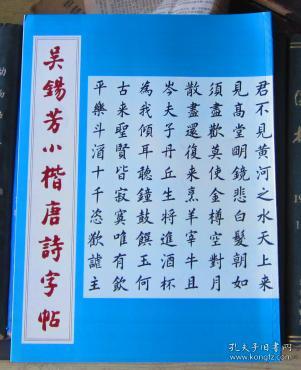 吴錫芳小楷唐詩字帖
君不見黄河之水天上来
見高堂明鏡悲白髮朝如
須盡歡莫使金樽空對月
散盡還復来烹羊宰牛且
岑夫子丹丘生将進酒杯
為我傾耳聽鐘鼓饌玉何
古来聖賢皆寂寞唯有飲
平樂斗酒十千恣歡謔主
孔夫子旧书网